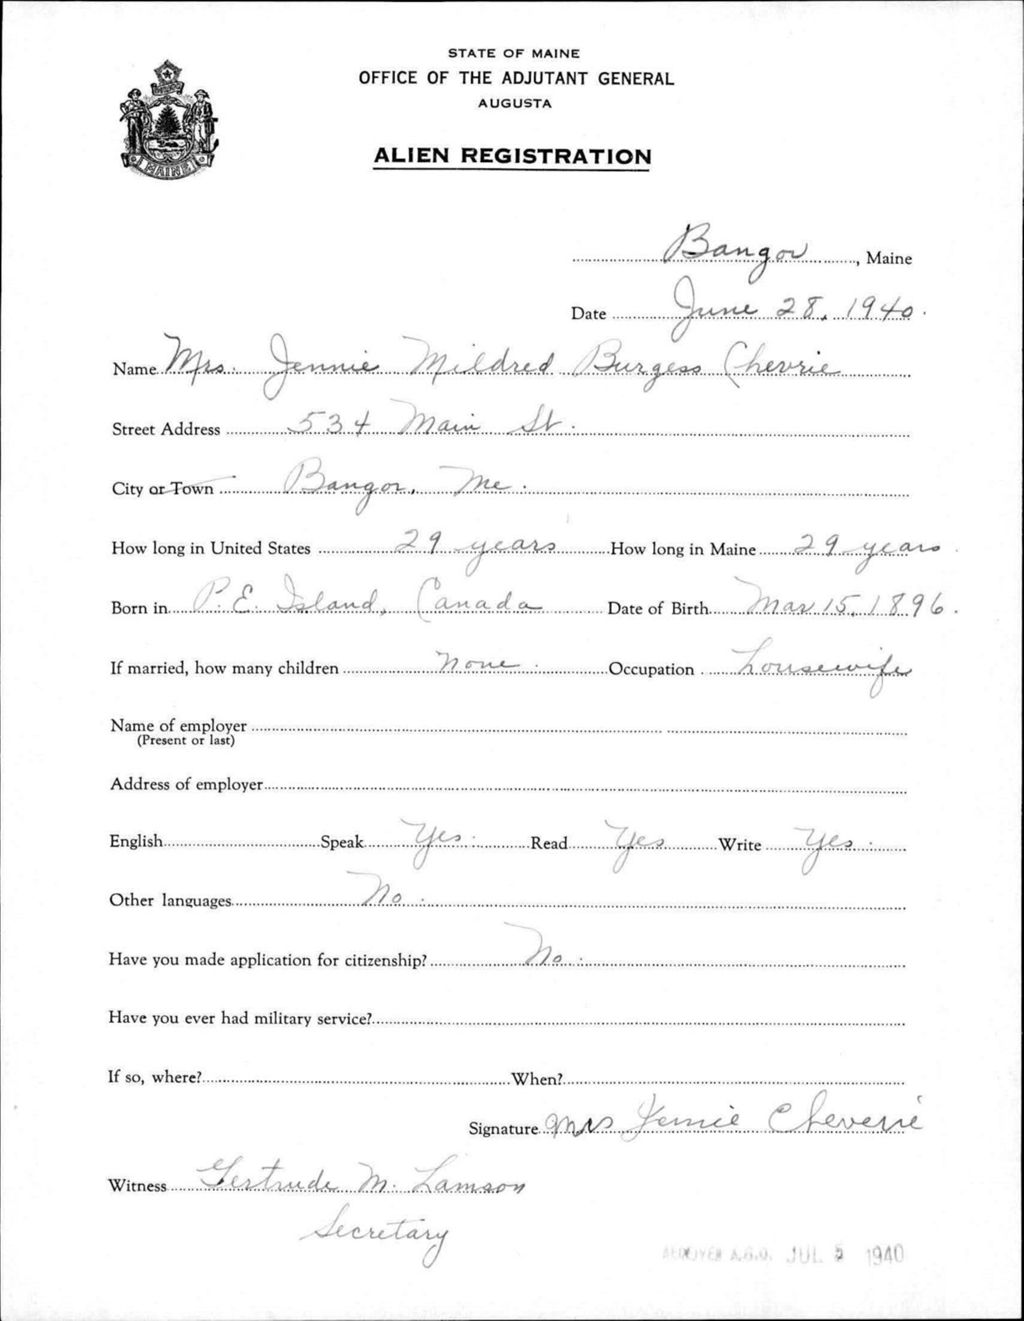 STATE OF MAINE
OFFICE OF THE ADJUTANT GENERAL
AUGUSTA
ALIEN REGISTRATION
MAINE
Bangor, Maine
Date June 28, 1940.
Name Mrs. Jennie Mildred Burgess Chevrie
Street Address 534 Main St.
City or Town Bangor, Me.
How long in United States 29 years How long in Maine 29 years.
Born in P.E. Island, Canada Date of Birth Mar 15, 1896.
If married, how many children None. Occupation housewife
Name of employer
(Present or last)
Address of employer
English Speak Yes. Read Yes. Write Yes.
Other languages No.
Have you made application for citizenship? No.
Have you ever had military service?
If so, where? When?
Signature Mrs Jennie Cheverie
Witness Gertrude M. Lamson
Secretary
A.G.O. JUL 5 1940